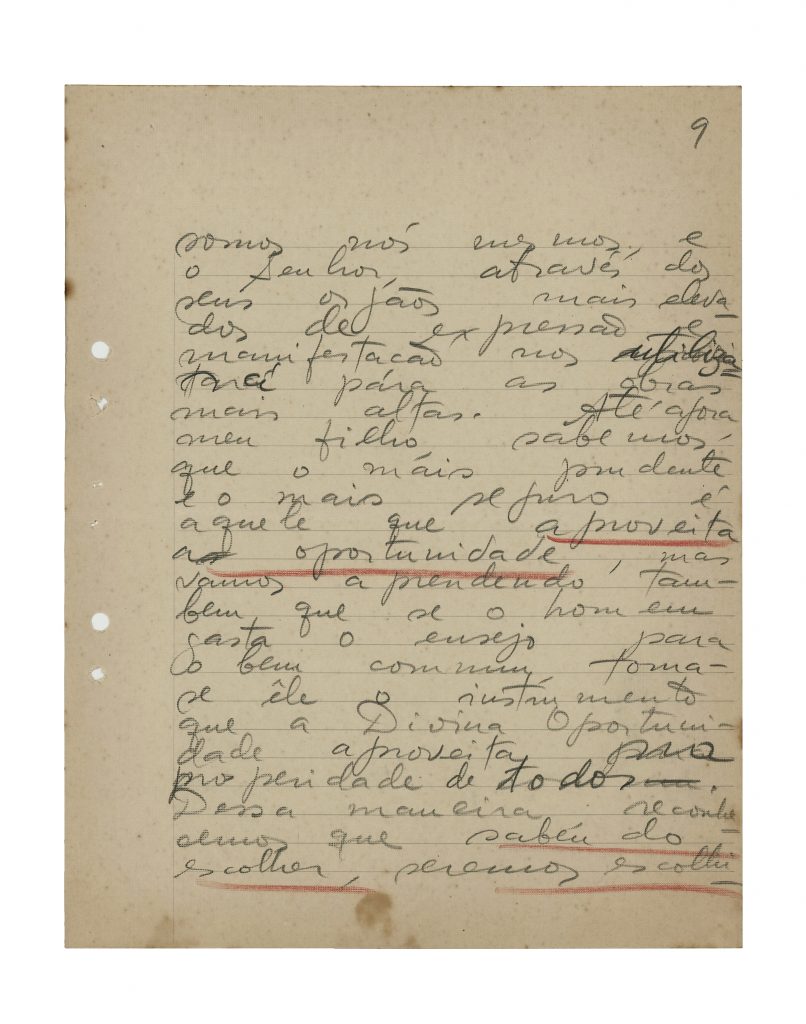 9
somos nós mesmos, e
o Senhor, através dos
seus orgãos mais eleva-
dos de expressão e
manifestacão nos utiliza-
rá pára as obras
mais altas. Até agora
meu filho sabemos,
que o máis prudente
e o mais seguro é
aquele que aproveita
a oportunidade, mas
vamos aprendendo tam-
bem que se o homem
gasta o ensejo para
o bem commum, torna-
se êle o instrumento
que a Divina Oportuni-
dade aproveita para
properidade de todos.
Dessa maneira reconhe-
cemos que sabendo
escolher, seremos escolhi-